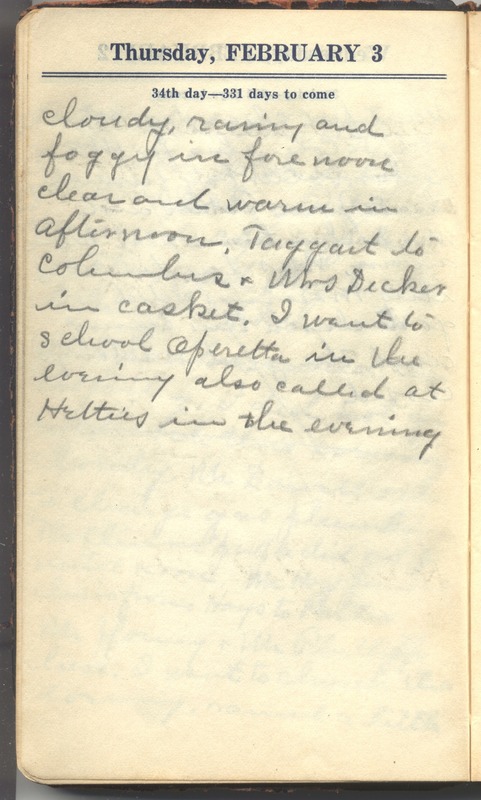 Thursday, FEBRUARY 3
34th day—331 days to come
cloudy, rainy and
foggy in fore noon
clear and warm in
afternoon. Taggart to
Columbus & Mrs Decker
in casket. I went to
school Operetta in the
evening also called at
Hetties in the evening